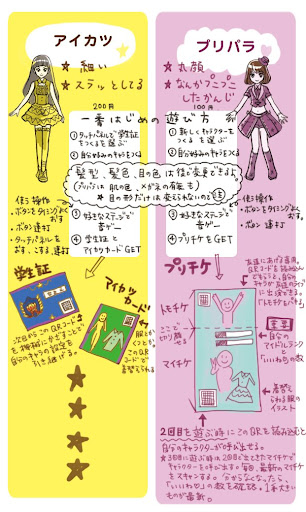 アイカツ
★ 細い
★ スラッとしてる
プリパラ
★ 丸顔
★ なんかプニプニ
したかんじ
200円
100円
一番はじめの遊び方
①タッチパネルで学生証
をつくるを選ぶ
②自分好みのキャラをつくる
①新しくキャラクター
をつくるを選ぶ
②自分好みのキャラをつくる
髪型、髪色、目の色は後で変更できるよ。
(プリパラは肌の色、メガネの有無も)
★目の形だけは変えられないので注
使う操作
・ボタンをタイミングよく
おす
・ボタン連打
・タッチパネルを
おす、こする、連打
③好きなステージで
音ゲー
④学生証と
アイカツカードGET
③好きなステージで
音ゲー
④プリチケをGET
使う操作
・ボタンをタイミングよく
おす
・ボタン連打
学生証
アイカツ
カード
2回目からこのQRコード
を機械にかざすことで
自分のキャラの設定を
引き継げる。
このQR
コード
で
着替えられる
プリチケ
トモチケ
ここで
切り離
せる
マイチケ
自分の
アイドルランク
と
「いいね」の数
着替え
られる服の
イラスト
2回目を遊ぶ時にこのQRを読み込むと
自分のキャラクターが呼び出せる。
★3回目に遊ぶ時は2回目で出てきたマイチケで
キャラクターを呼び出す。毎回、最新のマイチケ
をスキャンする。分からなくなったら、
「いいね」の数を確認。1番大きい
ものが最新。